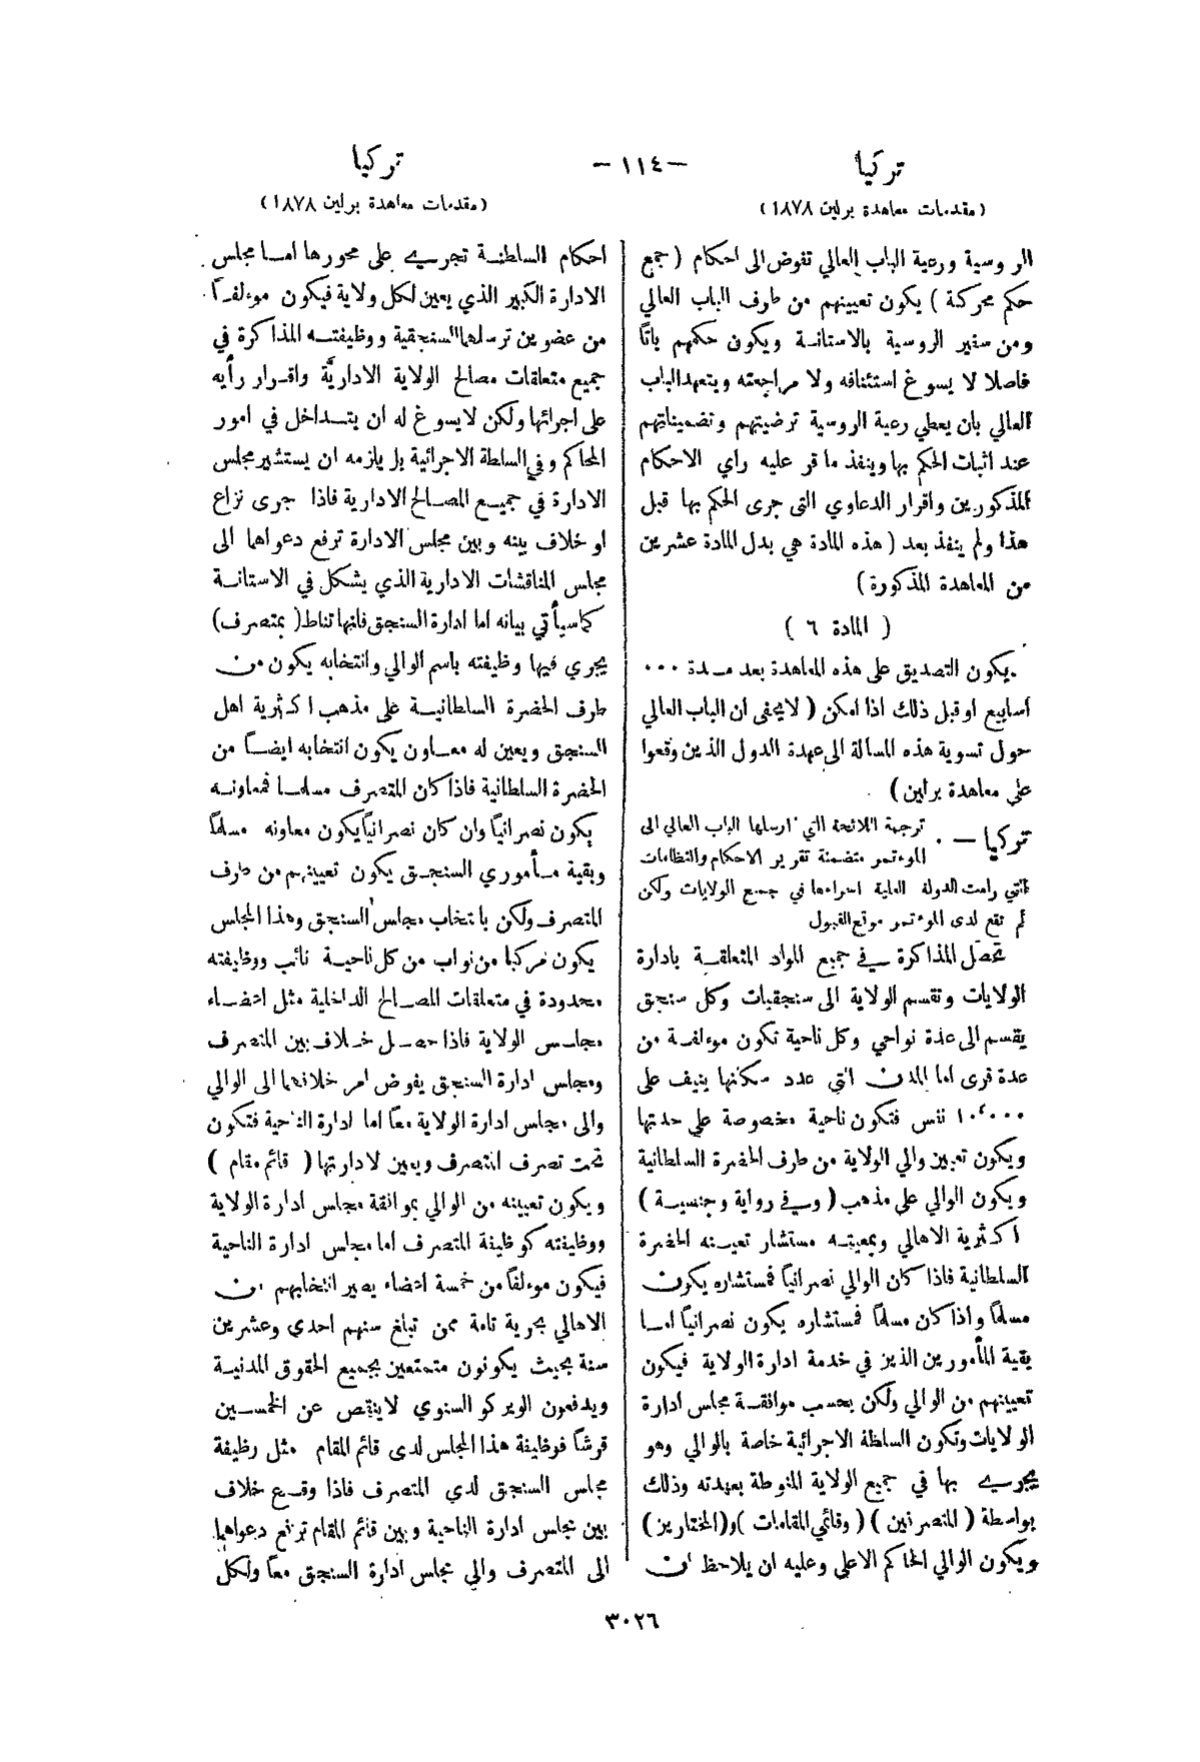 تركيا
— ١١٤ —
تركيا
(مقدمات معاهدة برلين ١٨٧٨)
(مقدمات معاهدة برلين ١٨٧٨)
الروسية ورعية الباب العالي تفوض الى احكام ( جمع
حكم محركة ) يكون تعيينهم من طرف الباب العالي
ومن سفير الروسية بالاستانة ويكون حكمهم باتًا
فاصلا لا يسوغ استئنافه ولا مراجعته ويتعهد الباب
العالي بان يعطي رعية الروسية ترضيتهم وتضميناتهم
عند اثبات الحكم بها وينفذ ما قر عليه راي الاحكام
المذكورين واقرار الدعاوي التى جرى الحكم بها قبل
هذا ولم ينفذ بعد ( هذه المادة هي بدل المادة عشرين
من المعاهدة المذكورة )
( المادة ٦ )
يكون التصديق على هذه المعاهدة بعد مدة ٠٠٠
أسابيع او قبل ذلك اذا امكن ( لا يخفى ان الباب العالي
حول تسوية هذه المسالة الى عهدة الدول الذين وقعوا
على معاهدة برلين )
تركيا — . ترجمة اللائحة التي ارسلها الباب العالي الى
الموءتمر متضمنة تقرير الاحكام والنظامات
التي رامت الدولة العلية اجراءها في جميع الولايات ولكن
لم تقع لدى الموءتمر موقع القبول
تحصّل المذاكرة في جميع المواد المتعلقة بادارة
الولايات وتقسم الولاية الى سنجقيات وكل سنجق
يقسم الى عدة نواحي وكل ناحية تكون موءلفة من
عدة قرى اما المدن التي عدد سكانها ينيف على
١٠٬٠٠٠ نفس فتكون ناحية مخصوصة على حدتها
ويكون تعيين والي الولاية من طرف الحضرة السلطانية
ويكون الوالي على مذهب ( وفي رواية وجنسية )
اكثرية الاهالي وبمعيته مستشار تعينه الحضرة
السلطانية فاذا كان الوالي نصرانياً فمستشاره يكون
مسلماً واذا كان مسلماً فمستشاره يكون نصرانياً اما
بقية المأمورين الذين في خدمة ادارة الولاية فيكون
تعيينهم من الوالي ولكن بحسب موافقة مجلس ادارة
الولايات وتكون السلطة الاجرائية خاصة بالوالي وهو
يجرى بها في جميع الولاية المنوطة بعهدته وذلك
بواسطة ( المتصرفين ) ( وقائمي المقامات ) و(المختارين)
ويكون الوالي الحاكم الاعلى وعليه ان يلاحظ ان
احكام السلطنة تجرى على محورها اما مجلس
الادارة الكبير الذي يعين لكل ولاية فيكون موءلفاً
من عضوين ترسلهما السنجقية ووظيفته المذاكرة في
جميع متعلقات مصالح الولاية الاداريَّة واقرار رأيه
على اجرائها ولكن لا يسوغ له ان يتداخل في امور
المحاكم وفي السلطة الاجرائية بل يلزمه ان يستشير مجلس
الادارة في جميع المصالح الادارية فاذا جرى نزاع
او خلاف بينه وبين مجلس الادارة ترفع دعواهما الى
مجلس المناقشات الادارية الذي يشكل في الاستانة
كما سيأتي بيانه اما ادارة السنجق فانها تناط ( بمتصرف )
يجري فيها وظيفته باسم الوالي وانتخابه يكون من
طرف الحضرة السلطانية على مذهب اكثرية اهل
السنجق ويعين له معاون يكون انتخابه ايضاً من
الحضرة السلطانية فاذا كان المتصرف مسلما فمعاونه
يكون نصرانياً وان كان نصرانياً يكون معاونه مسلماً
وبقية مأموري السنجق يكون تعيينهم من طرف
المتصرف ولكن بانتخاب مجلس السنجق وهذا المجلس
يكون مركبا من نواب من كل ناحية نائب ووظيفته
محدودة في متعلقات المصالح الداخلية مثل اعضاء
مجلس الولاية فاذا حصل خلاف بين المتصرف
ومجلس ادارة السنجق يفوض امر خلافهما الى الوالي
والى مجلس ادارة الولاية معاً اما ادارة الناحية فتكون
تحت تصرف المتصرف ويعين لادارتها ( قائم مقام )
ويكون تعيينه من الوالي بموافقة مجلس ادارة الولاية
ووظيفته كوظيفة المتصرف اما مجلس ادارة الناحية
فيكون موءلفاً من خمسة اعضاء يصير انتخابهم من
الاهالي بحرية تامة ممن تبلغ سنهم احدى وعشرين
سنة بحيث يكونون متمتعين بجميع الحقوق المدنية
ويدفعون الويركو السنوي لا ينقص عن الخمسين
قرشاً فوظيفة هذا المجلس لدى قائم المقام مثل وظيفة
مجلس السنجق لدي المتصرف فاذا وقع خلاف
بين مجلس ادارة الناحية وبين قائم المقام ترفع دعواهما
الى المتصرف والي مجلس ادارة السنجق معاً ولكل
٣٠٢٦